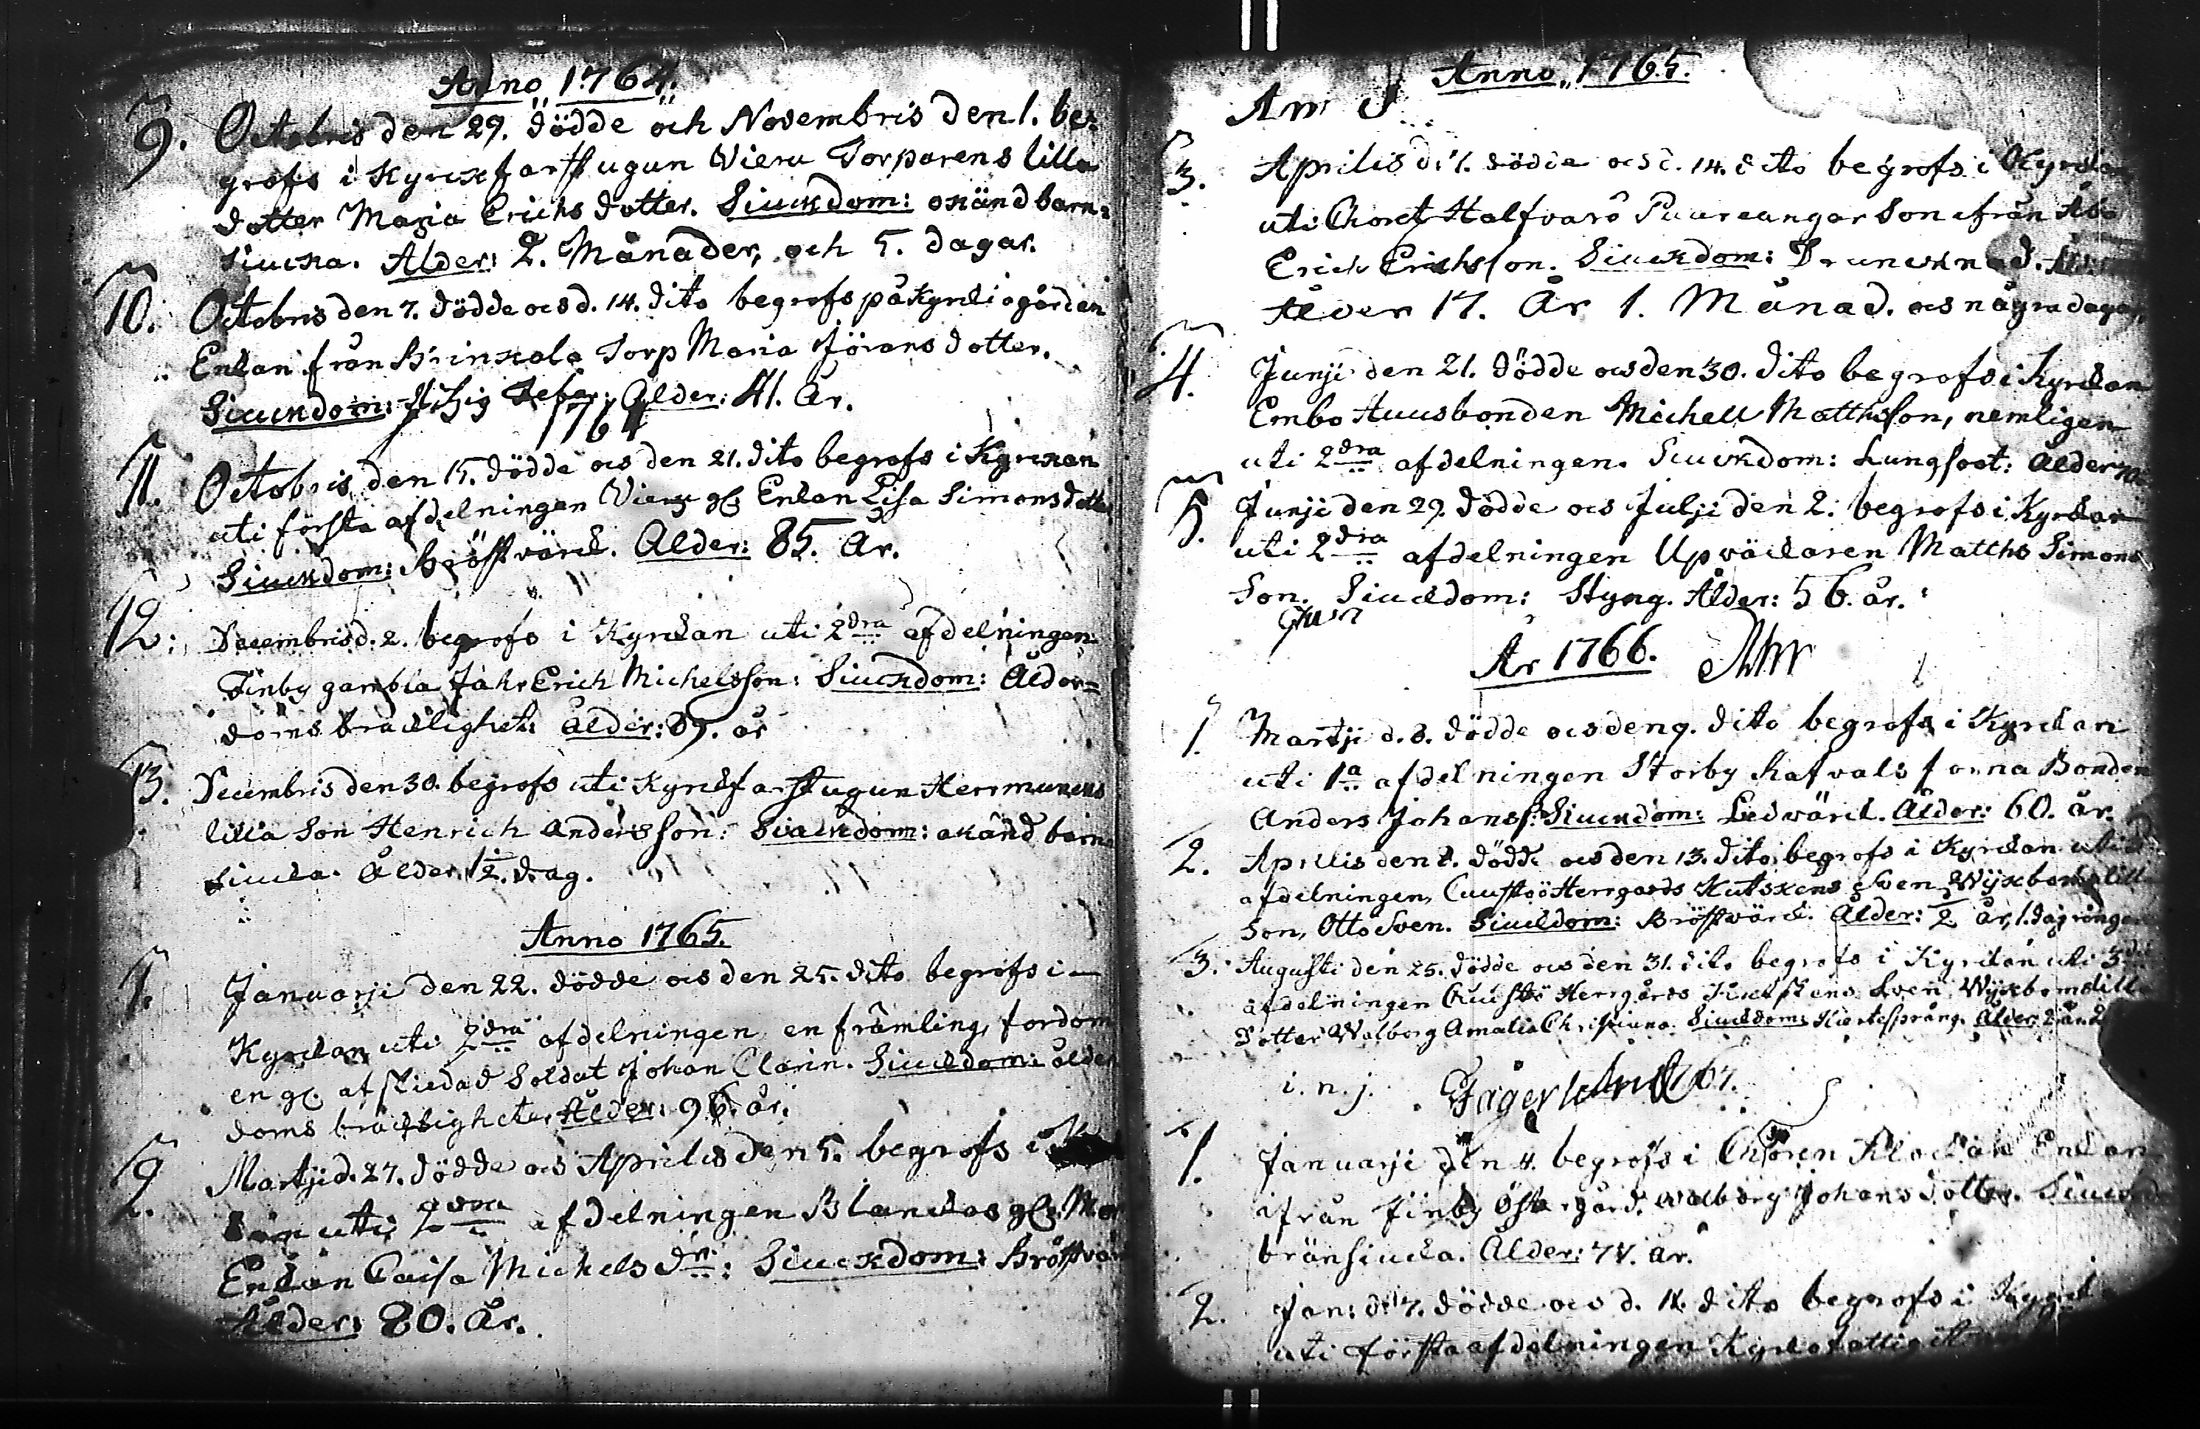 Anno 1764.
9. Octobris den 29. dödde och Novembris den 1. be-
grofs i Kyrckfarstugun Vieru Torparens lilla
dotter Maria Erichs dotter. Siuckdom: okänd barn-
siucka. Ålder: 2. Månader, och 5. dagar.
10. Octobris den 7. dödde och d. 14. dito begrofs på Kyrckiogården
Enkan från Brinkala Torp Maria Jörans dotter.
Siuckdom: Hitzig Feber. Ålder: 41. År.
1764
11. Octobris den 15. dödde och den 21. dito begrofs i Kyrckan
uti första afdelningen Vieru gl. Enkan Lisa Simonsdotter
Siuckdom: Bröstvärck. Ålder: 85. År.
12. Decembris d. 2. begrofs i Kyrckan uti 2dra afdelningen
Finby gambla Erich Michelsson: Siuckdom: Ålder-
doms bräcklighet: ålder: 89. år
13. Decembris den 30. begrofs uti Kyrckfarstugun Herrmunens
lilla Son Henrich Andersson: Siuckdom: okänd barn-
siucka. Ålder 1/2. dag.
Anno 1765.
1. Januarji den 22. dödde och den 25. dito begrofs i
Kyrckan uti 2dra afdelningen en främling, fordom
en gl. afskiedad Soldat Johan Clarin. Siuckdom: ålder
doms bräcklighet. Ålder: 96. år.
2. Martji d. 27. dödde och Aprilis den 5. begrofs i
kan uti 2dra afdelningen Blanckas gl. Mor
Enkan Caisa Michels dr: Siuckdom: Bröstvär
Ålder: 80. År.
Anno 1765.
3. Aprilis d. 1. dödde och d. 14. dito begrofs i Kyrckan
uti Choret Halfvars son från Åbo
Erich Erichsson. Siuckdom: Drunknad.
Ålder 17. År 1. Månad. och några dagar,
4. Junji den 21. dödde och den 30. dito begrofs i Kyrckan
Embo Huusbonden Michell Matthsson, nemligen
uti 2dra afdelningen. Siuckdom: Lungsoot: Ålder 70
5. Junji den 29. dödde och Julji den 2. begrofs i Kyrckan
uti 2dra afdelningen Upväckaren Matths Simons
Son. Siuckdom: Styng. Ålder: 56. år.
År 1766.
1. Martji d. 8. dödde och den 9. dito begrofs i Kyrckan
uti 1a afdelningen Storby Rafvals forna Bonden
Anders Johanss: Siuckdom: Ledvärck. Ålder: 60. år.
2. Aprilis den 8. dödde och den 13. dito begrofs i Kyrckan uti
afdelningen, Cuustöö Herrgårds Kutskens Sven Wijkboms lill
Son, Otto Sven. Siuckdom: Bröstvärck. Ålder: 1/2 år, 1. dag ringare
3. Augusti den 25. dödde och den 31. dito begrofs i Kyrckan uti 3die
afdelningen Cuustö Herrgårds Kutskens Sven Wijkboms lilla
Dotter Walborg Amalia Christiana. Siuckdom: Hiertesprång. Ålder 2 år. 2
i. n. j. 1767.
1. Januarji den 4. begrofs i Choren Klockare Enkan
ifrån Finby Östergård, Walborg Johans dotter. Siuckd
bränsiucka. Ålder: 74. år.
2. Jan: d. 7. dödde och d. 11. dito begrofs i Kyrck
uti första afdelningen Kyrckofattig